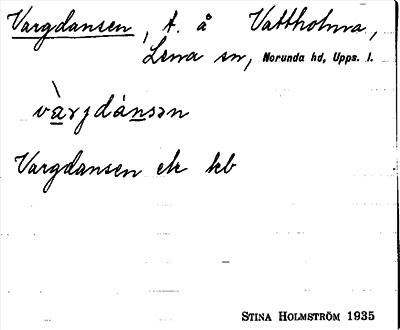 Vargdansen, t. å Vattholma,
Lena sn, Norunda hd, Upps. l.
và̱rjdáṉsən
Vargdansen ek kb
STINA HOLMSTRÖM 1935